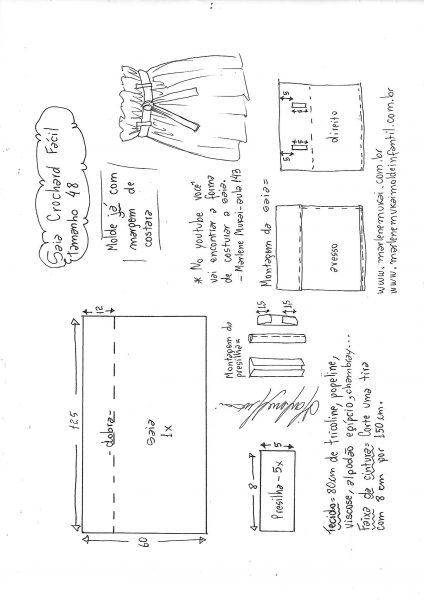 Saia Crochard Fácil
Tamanho 48
Molde já com
margem de
costura
* No youtube você
vai encontrar a forma
de costurar a saia.
- Marlene Mukai - aula 143
125
12
-dobra-
saia
1x
60
Montagem da saia=
avesso
direito
5
5
5
www.marlenemukai.com.br
www.marlenemukaimoldeinfantil.com.br
Montagem da
presilha=
1,5
1,5
8
5
Presilha - 5x
Tecido= 80cm de tricoline, popeline,
viscose, algodão egípcio, chambray...
Faixa de cintura= Corte uma tira
com 8 cm por 150 cm.